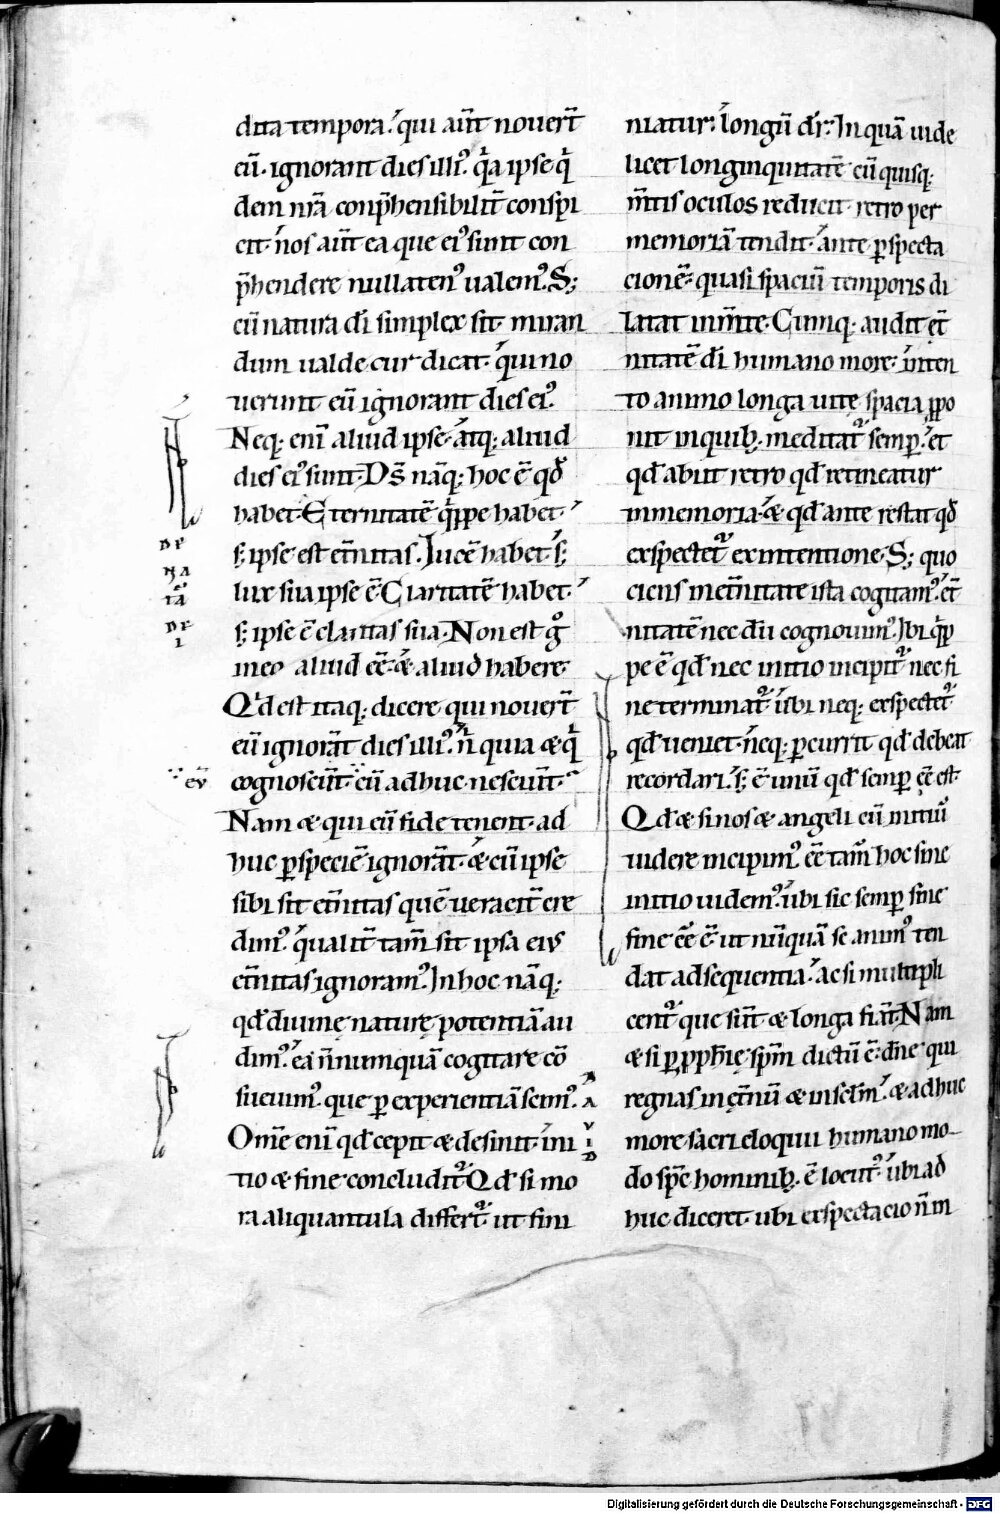 dita tempora. qui aūt nouer̄t
eū. ignorant dies illi᾽. q̇a ipse q̇
dem nr̄a conp̄hensibilit̄ conspi
cit. nos aūt ea que ei᾽ sunt con
p̄hendere nullaten᾽ ualem᾽. S;
cū natura dī simplex sit. miran
dum ualde cur dicat. qui no
uerunt eū ignorant dies ei᾽.
Neq; eni aliud ipse. atq; aliud
dies ei᾽ sunt. Ds̄ nāq; hoc ē qđ
habet. Eternitatē q̇ppe habet.
s; ipse est et̄nitas. Lucē habet. s;
lux sua ipse ē. Claritatē habet.
s; ipse ē claritas sua. Non est g̊
in eo aliud ēē. & aliud habere.
Qđ est itaq; dicere qui nouer̄t
eū ignorāt dies illi᾽. n̄ quia & q̇
cognoscūt eū adhuc nesciūt.
Nam & qui eū fide tenent. ad
huc p speciē ignorāt. & cū ipse
sibi sit et̄nitas quē ueracit̄ cre
dim᾽. qualit̄ tam̄ sit ipsa eius
et̄nitas ignoram᾽. In hoc nāq;
qđ diuinę naturę potentiā au
dim᾽. ea n̄nunquā cogitare cō
sueuim᾽. que p experientiā scim᾽.
Om̄e enī qđ cepit & desinit. ini
tio & fine concludit᾽. Qđ si mo
ra aliquantula differt᾽. ut fini
niatur. longū dr̄. In quā uide
licet longinquitatē cū quisq;
m̄tis oculos reducit retro per
memoriā tendit. ante pspecta
cionē. quasi spaciū temporis di
latat in m̄te. Cumq; audit et̄
nitatē dī humano more. inten
to animo longa uitę spacia ppo
nit in quib; meditat᾽ semp. et
qđ abiit retro qđ retineatur
in memoria. & qđ ante restat qđ
exspectet᾽ ex intentione. S; quo
ciens in et̄nitate ista cogitam᾽. et̄
nitatē nec dū cognouim᾽. Ibi q̇p
pe ē qđ nec initio incipit᾽ nec fi
ne terminat᾽. ubi neq; exspectet᾽
qđ ueniet. neq; pcurrit qđ debeat
recordari. s; ē unū qđ semp ēē est.
Qđ & si nos & angeli cū initiū
uidere incipim᾽ ēē tam̄ hoc sine
initio uidem᾽. ubi sic semp sine
fine ēē ē. ut nūquā se anim᾽ ten
dat ad sequentia. ac si multipli
cent᾽ que sūt & longa fiāt. Nam
& si p pph̄ię sp̄m dictū ē. dn̄e qui
regnas in et̄nū & in sc̄lm. & adhuc
more sacri eloquii humano mo
do sp̄c hominib; ē locut᾽. ubi ad
huc diceret. ubi exspectacio n̄ in
DE
ÆTA
DEI
eū
DAVID
Digitalisierung gefördert durch die Deutsche Forschungsgemeinschaft - DFG